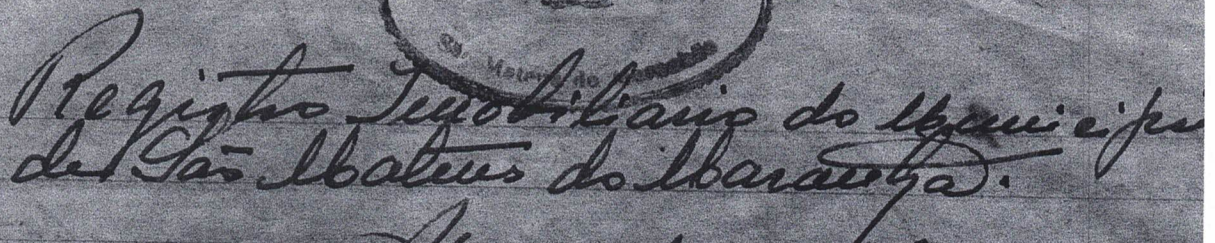 São Mateus do Maranhão
Registro Imobiliario do Municipi
de São Mateus do Maranhão.